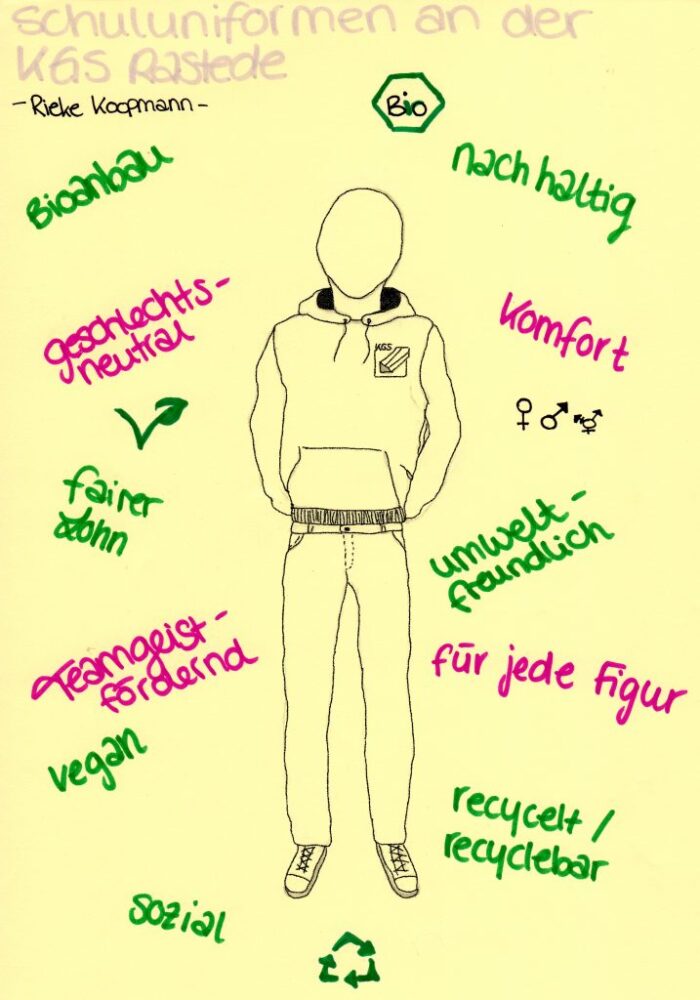 Schuluniformen an der
KGS Rastede
- Rieke Koopmann -
Bio
Bioanbau
nachhaltig
geschlechts-
neutral
Komfort
KGS
fairer
Lohn
umwelt-
freundlich
Teamgeist-
fördernd
für jede Figur
vegan
recycelt /
recyclebar
sozial